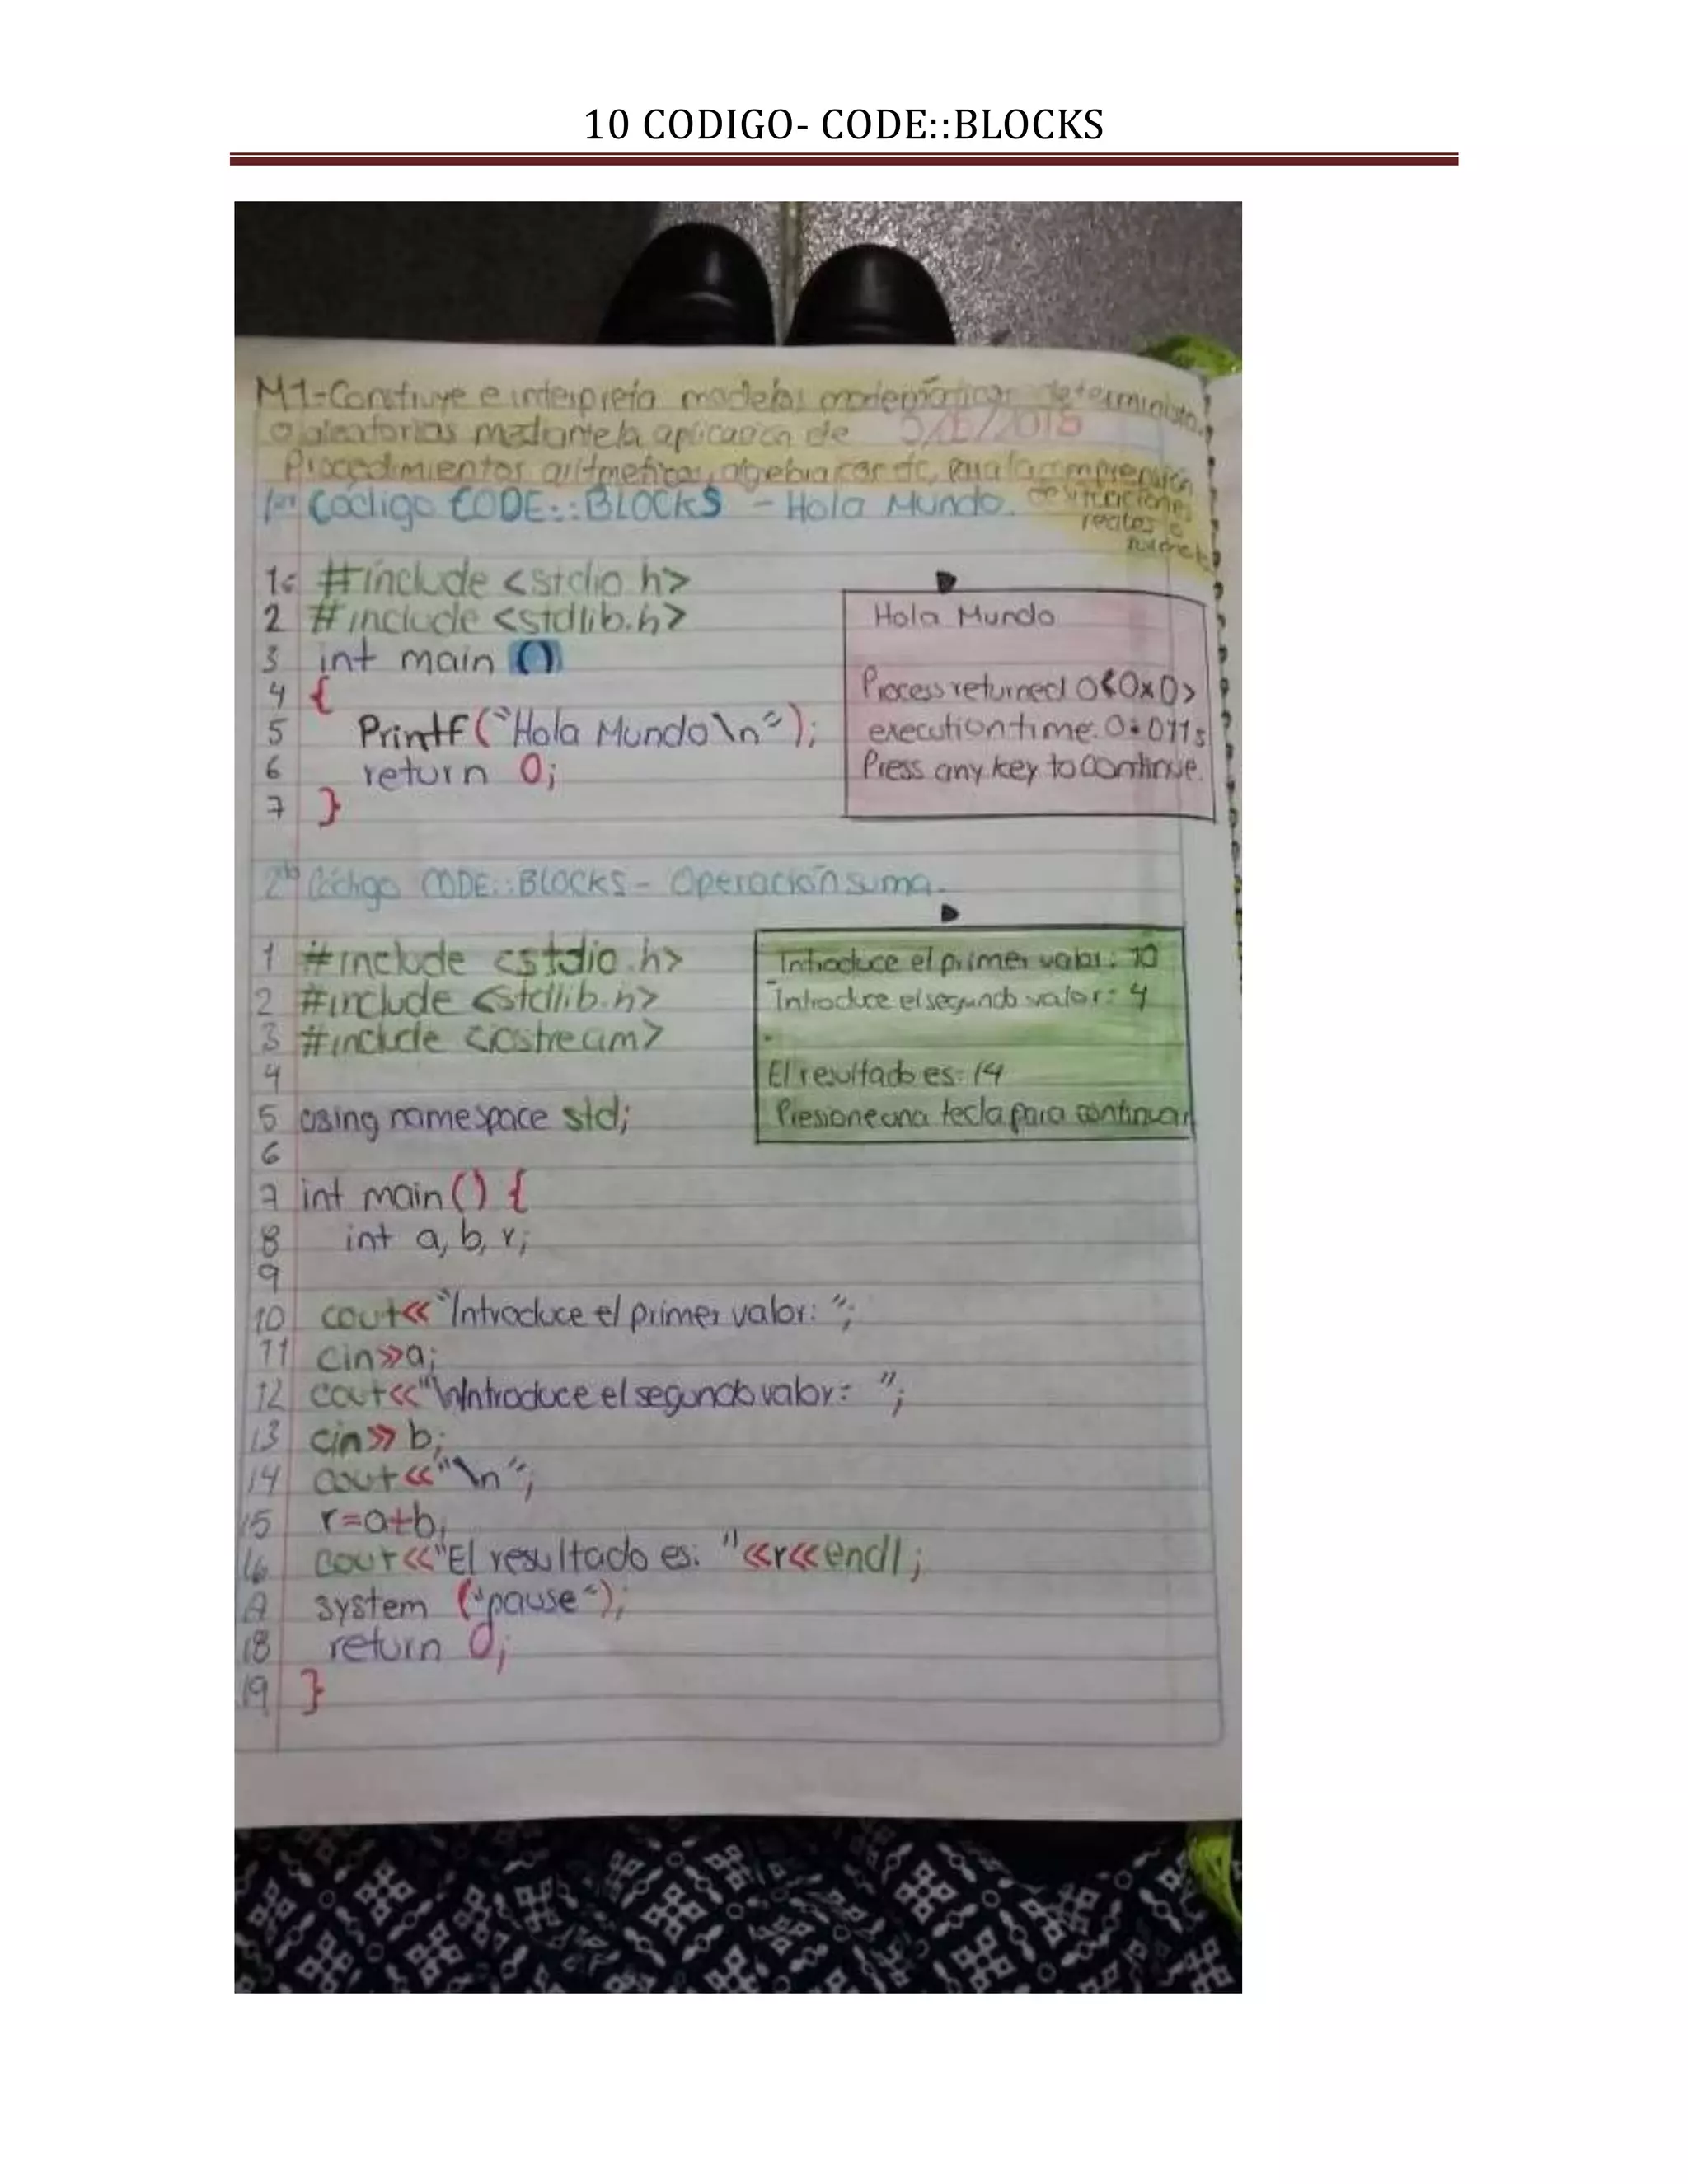 10 CODIGO- CODE::BLOCKS
M1-Construye e interpreta modelos matemáticos deterministas
o aleatorios mediante la aplicación de 5/06/2018
Procedimientos aritméticos, algebraicos etc, para la comprensión
de situaciones
reales o
1er Código CODE::BLOCKS - Hola Mundo.
1 #include <stdio.h>
2 #include <stdlib.h>
3 int main ()
4 {
5 Printf("Hola Mundo\n");
6 return 0;
7 }
Hola Mundo
Process returned 0<0x0>
execution time: 0:011s
Press any key to continue.
2do Código CODE::BLOCKS - Operación suma.
1 #include <stdio.h>
2 #include <stdlib.h>
3 #include <iostream>
4
5 using namespace std;
6
7 int main() {
8 int a, b, r;
9
10 cout<<"Introduce el primer valor: ";
11 cin>>a;
12 cout<<"\nIntroduce el segundo valor: ";
13 cin>> b;
14 cout<<"\n";
15 r=a+b;
16 cout<<"El resultado es: "<<r<<endl;
17 system ("pause");
18 return 0;
19 }
Introduce el primer valor: 10
Introduce el segundo valor: 4
El resultado es: 14
Presione una tecla para continuar